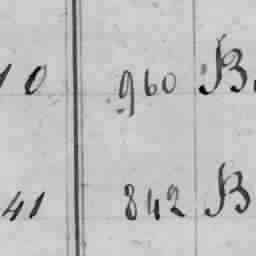 10 960 B.
41 842 B